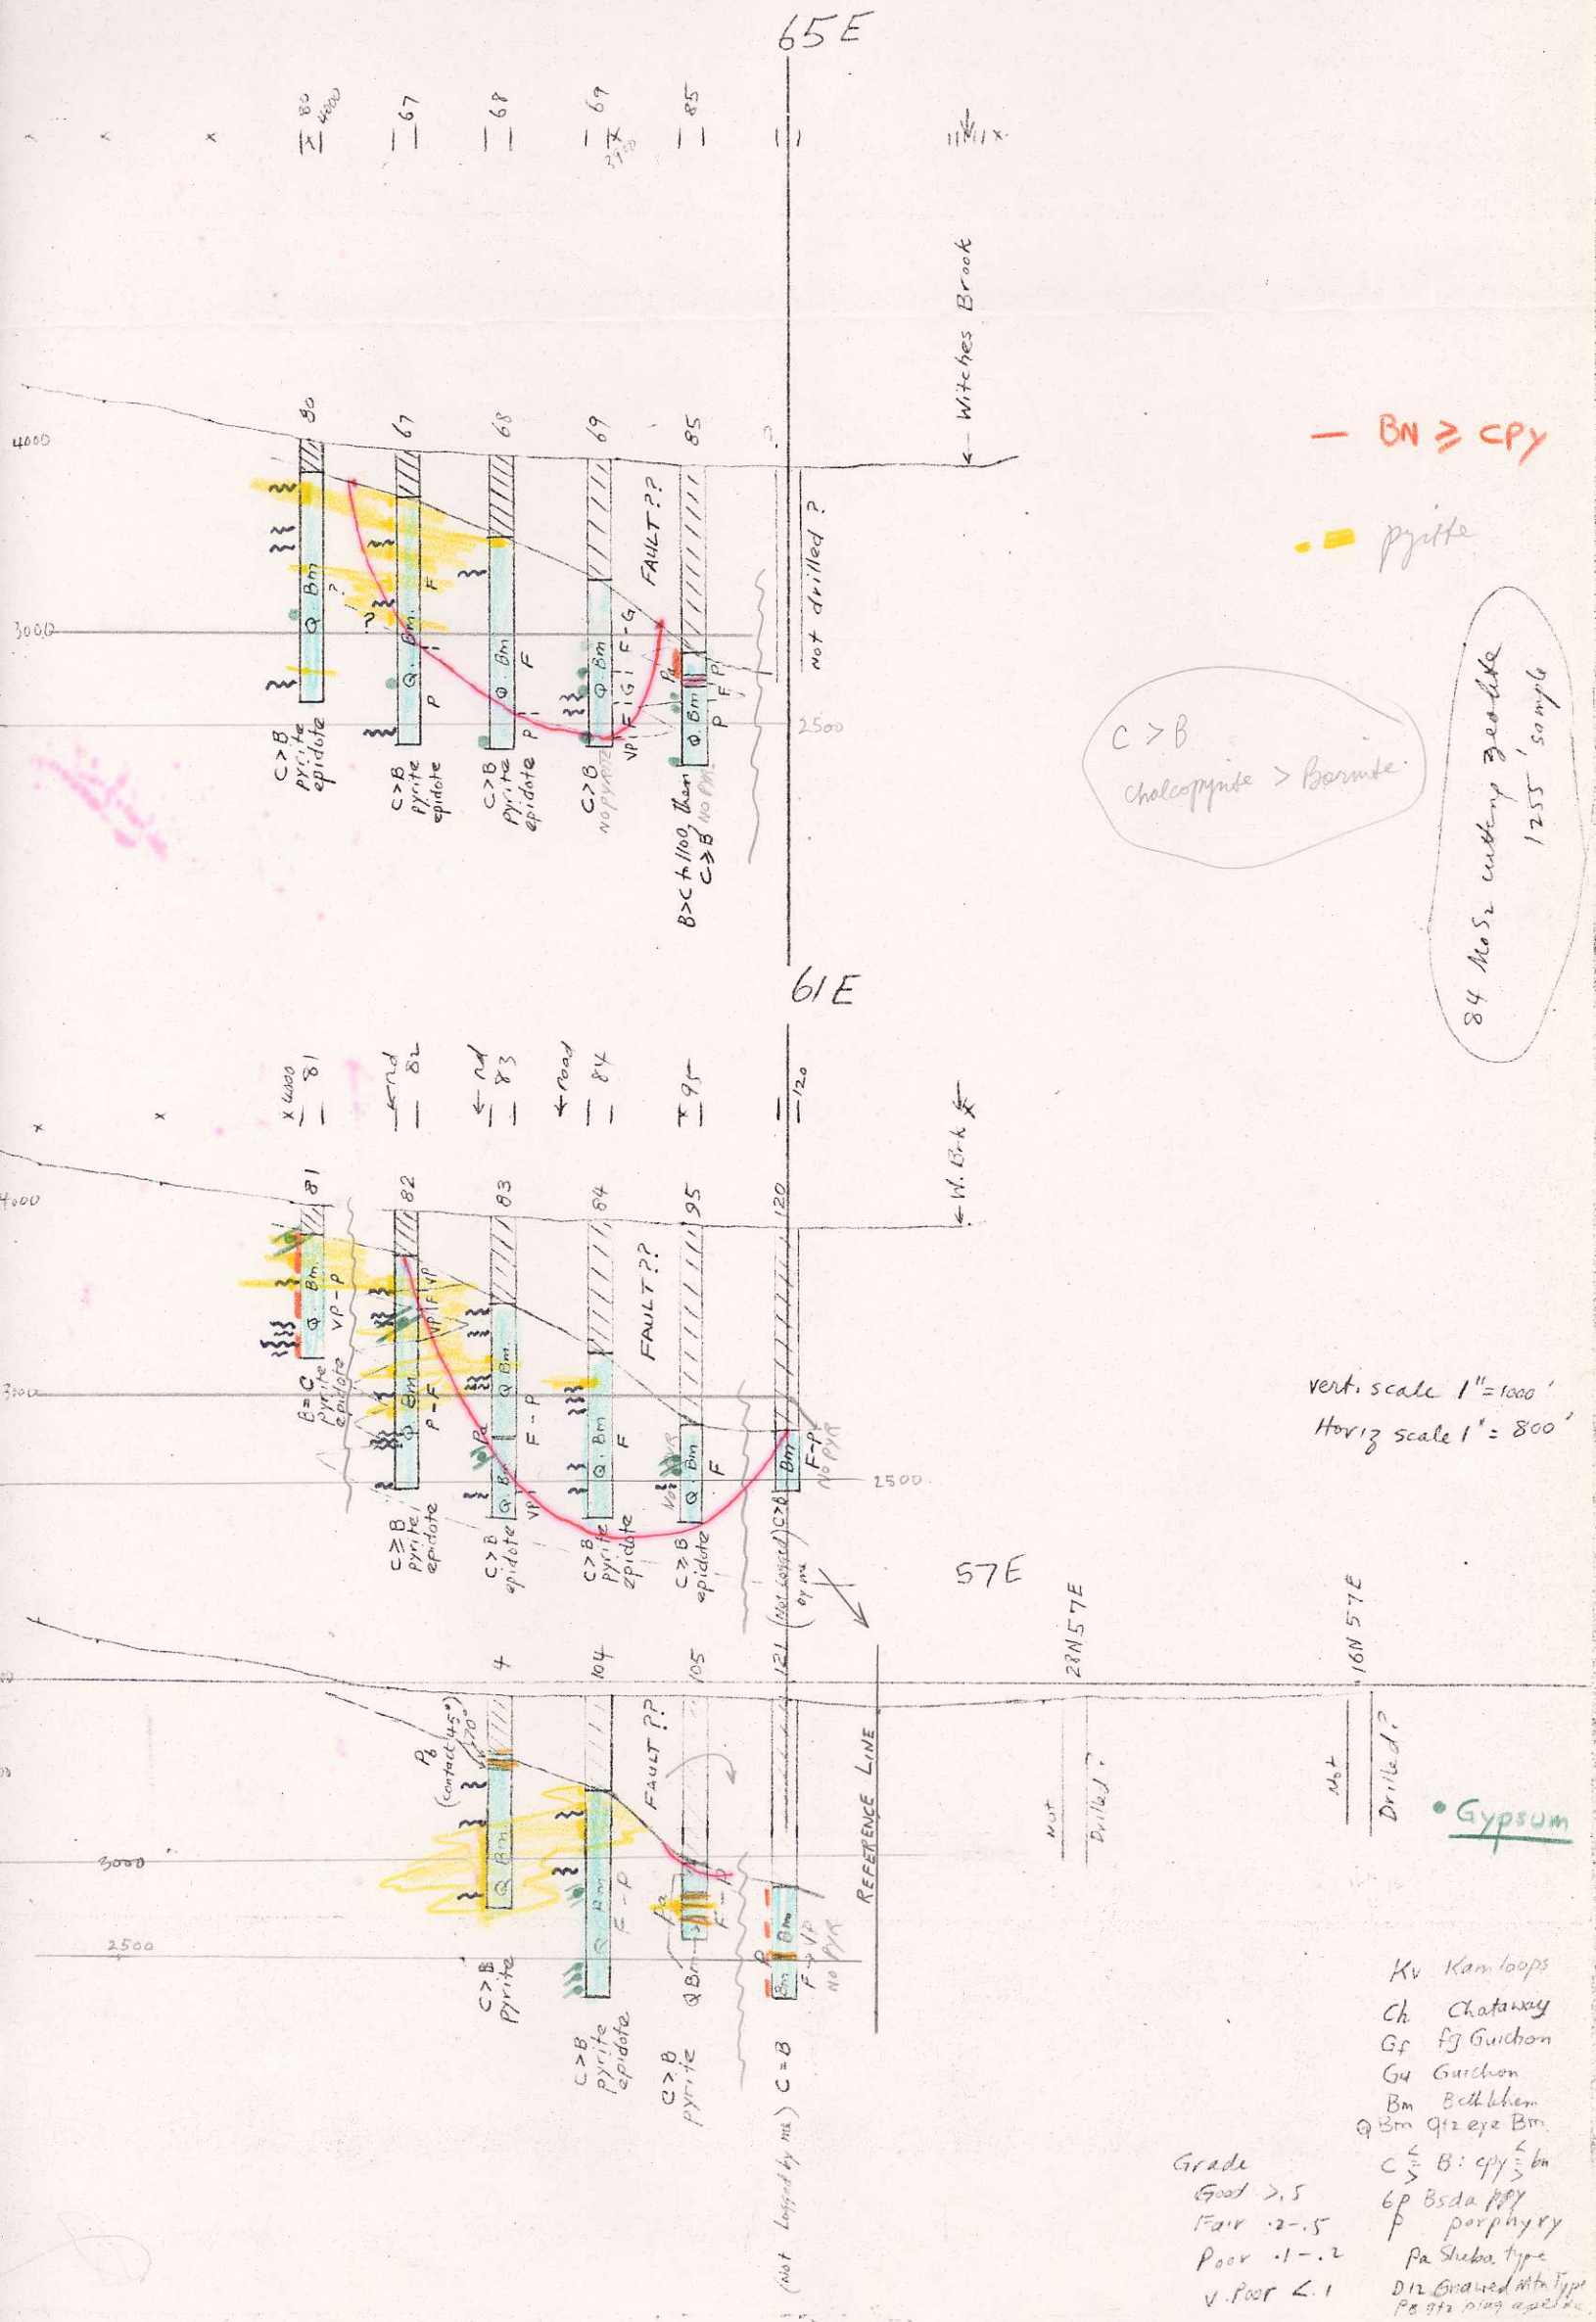 65E
80
4000
67
68
69
85
← Witches Brook
4000
80
67
68
69
85
?
— BN ≥ CPY
pyrite
3000
Q Bm
?
Q. Bm.
F
P
?
Q. Bm
F
P
Q. Bm
VP|F|G|F-G
FAULT??
Pa
Q. Bm
P
F
P
Not drilled ?
2500
C>B
pyrite
epidote
C>B
pyrite
epidote
C>B
pyrite
epidote
C>B
NO PYRITE
B>C to 1100, then
C≥B NO PYR.
C > B
chalcopyrite > Bornite.
84 MoS2 cutting zeolite
1255' sample
61E
x 4000
81
← rd
82
← rd
83
← road
84
95
120
← W. Brk
4000
81
82
83
84
95
120
Q. Bm.
VP-P
Q Bm
P-F
VP|F|VP
Q. Bm
Q Bm.
Pa
VP
F-P
Q. Bm
F
FAULT??
Q. Bm
F
Bm
F-P
NO PYR
3000
2500
B=C
pyrite
epidote
C≥B
pyrite
epidote
C>B
epidote
C>B
pyrite
epidote
C≥B
epidote
(Not logged) C>B
by me
vert. scale 1"=1000'
Horiz scale 1"= 800'
57E
28N57E
16N57E
4
104
105
121
(contact 45°
70°
FAULT??
REFERENCE LINE
Not
Drilled?
Not
Drilled?
• Gypsum
3000
2500
Q Bm
Q Bm
F-P
Pa
Q Bm
F-P
P
Bm
Bm
F→VP
NO PYR
C>B
pyrite
C>B
pyrite
epidote
C>B
pyrite
(Not logged by me) C=B
Kv Kamloops
Ch Chataway
Gf fg Guichon
Gu Guichon
Bm Bethlehem
Q Bm qtz eye Bm.
C ≶ B: cpy ≶ bn
Bsda ppy
P porphyry
Pa Sheba type
Gnawed Mtn Type
Grade
Good >.5
Fair .2-.5
Poor .1-.2
V. Poor <.1